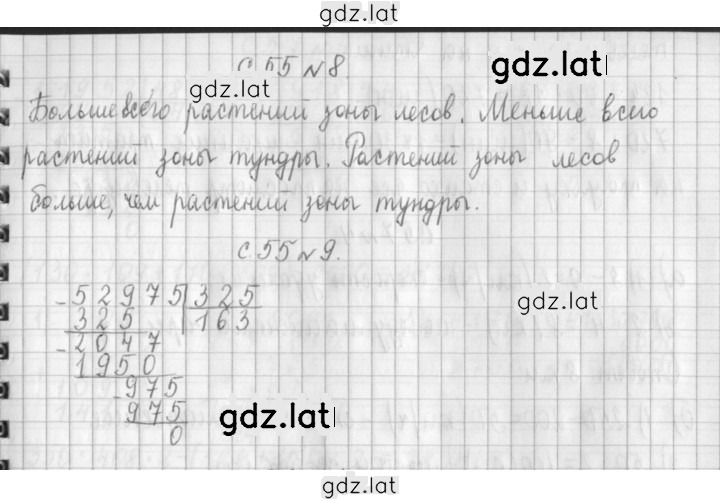 gdz.lat
с. 55 №8.
gdz.lat
gdz.lat
Больше всего растений зоны лесов. Меньше всего
растений зоны тундры. Растений зоны лесов
больше, чем растений зоны тундры.
с. 55 №9.
- 52975 | 325
325 | 163
gdz.lat
- 2047
1950
- 975
975
gdz.lat
0
gdz.lat